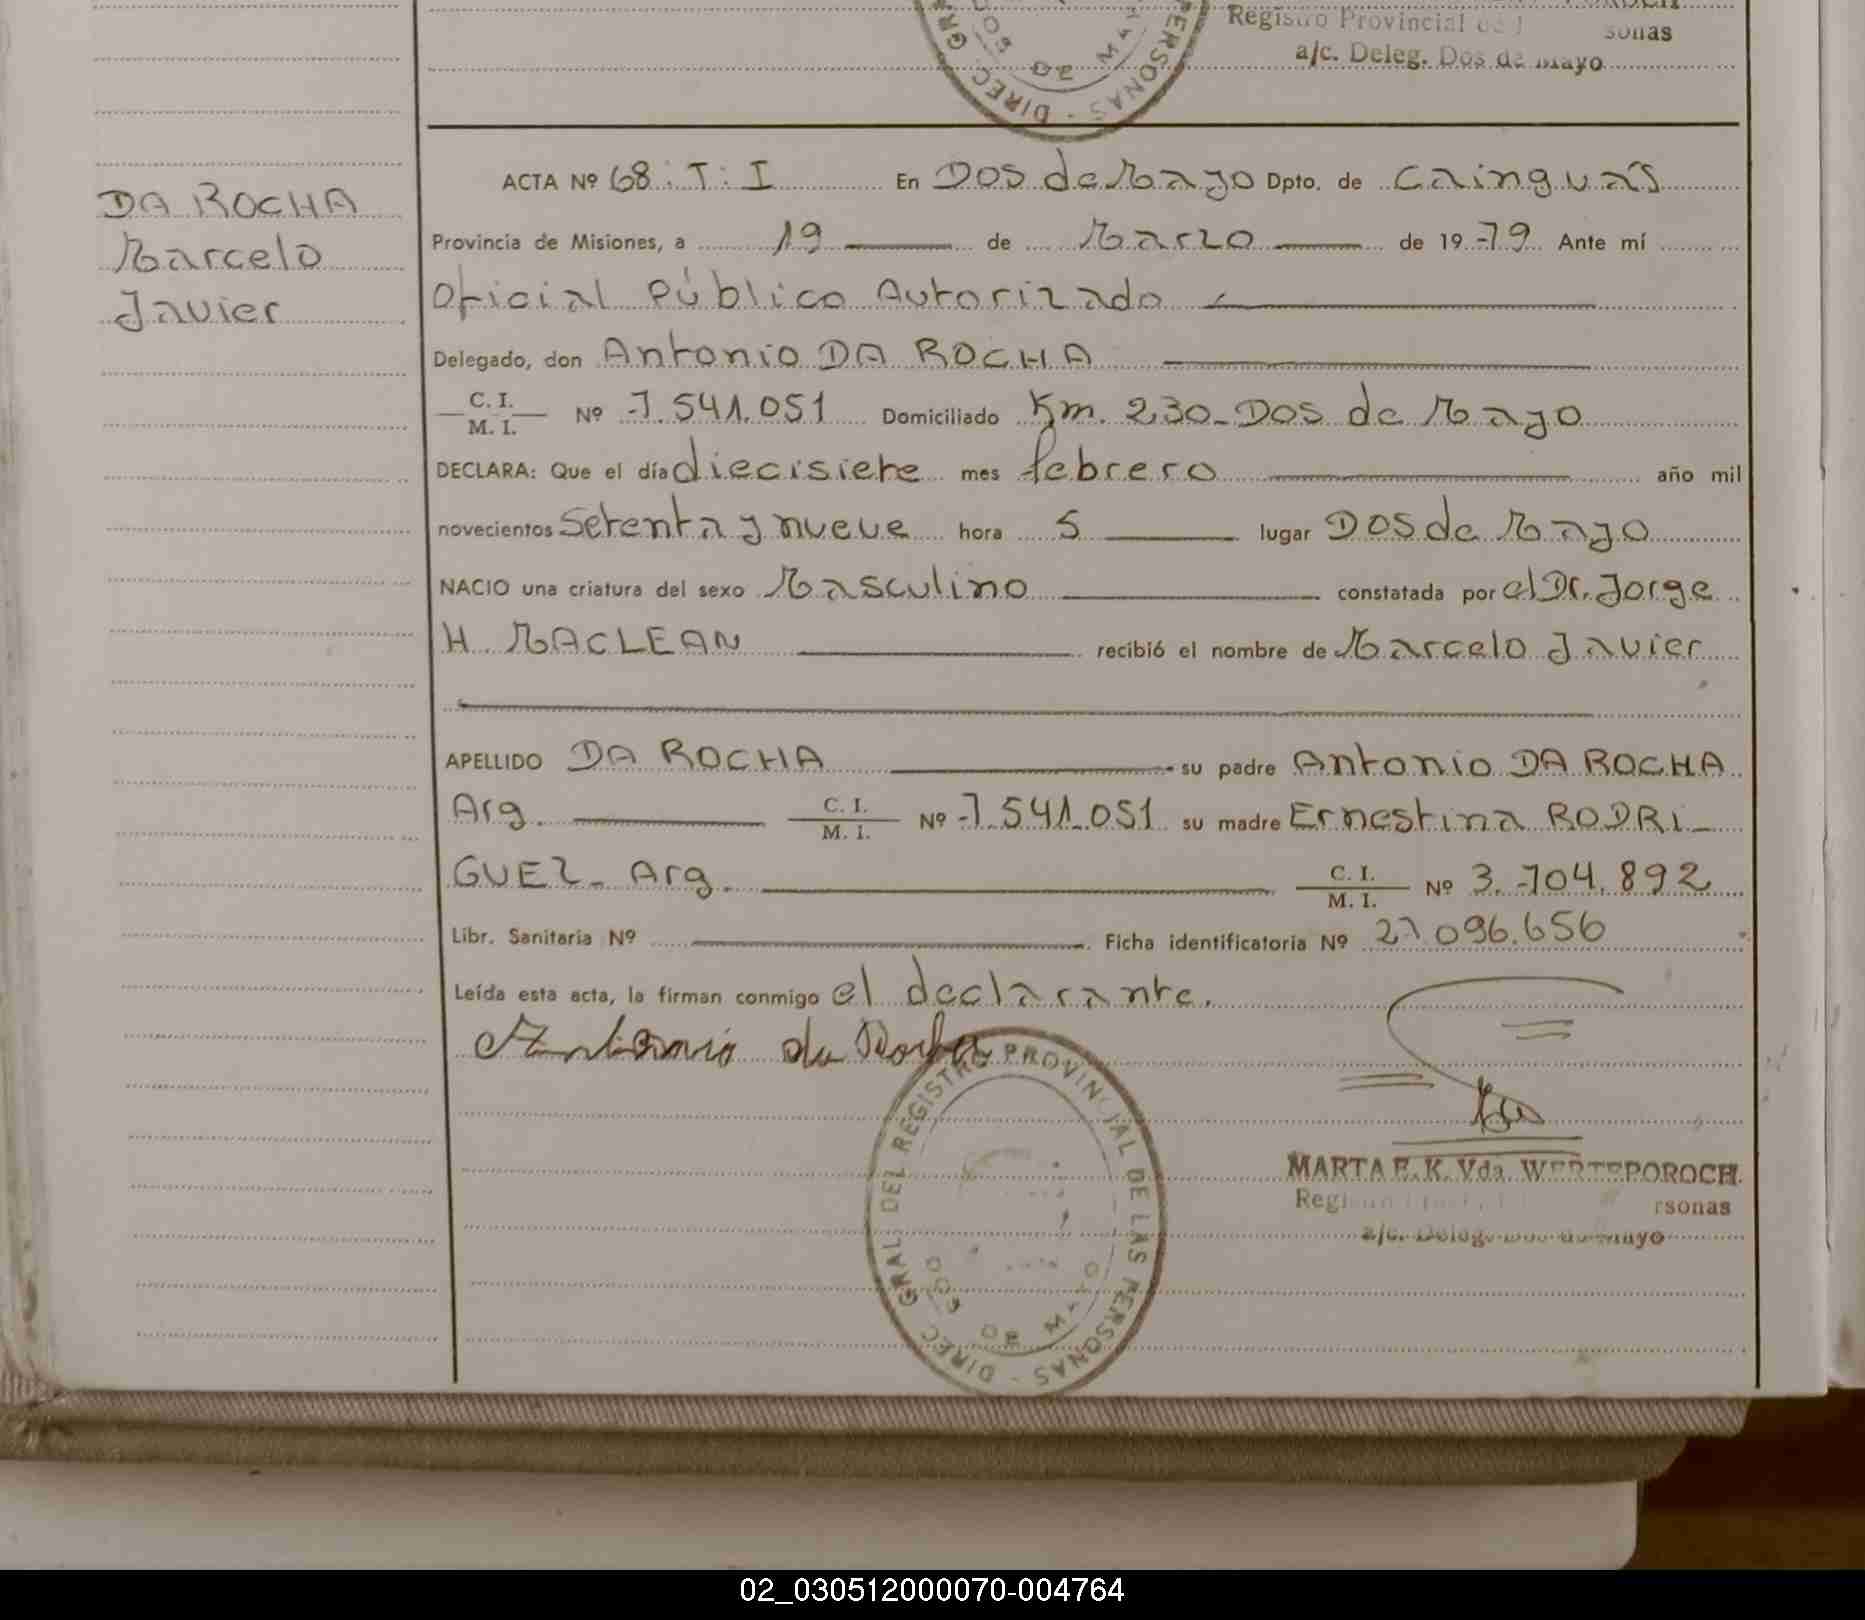 Registro Provincial de sonas
a/c. Deleg. Dos de Mayo
DOS DE MAY
DIREC GRA PERSONAS -
DA ROCHA
Marcelo
Javier
ACTA Nº 68: T: I En Dos de Mayo Dpto. de Cainguás
Provincia de Misiones, a 19 de Marzo de 1979 Ante mí
Oficial Público Autorizado
Delegado, don Antonio DA ROCHA
C. I.
M. I. Nº 7.541.051 Domiciliado Km. 230-Dos de Mayo
DECLARA: Que el día diecisiete mes febrero año mil
novecientos setenta y nueve hora 5 lugar Dos de Mayo
NACIO una criatura del sexo Masculino constatada por el Dr. Jorge
H. MACLEAN recibió el nombre de Marcelo Javier
APELLIDO DA ROCHA su padre Antonio DA ROCHA
Arg. C. I.
M. I. Nº 7.541.051 su madre Ernestina RODRI-
GUEZ- Arg. C. I.
M. I. Nº 3.704.892
Libr. Sanitaria Nº Ficha identificatoria Nº 27.096.656
Leída esta acta, la firman conmigo el declarante.
Antonio da Rocha
DIREC GRAL DEL REGISTRO PROVINCIAL DE LAS PERSONAS -
DOS DE MAYO
MARTA E. K. Vda. WERTEPOROCH
Regi rsonas
a/c. Deleg. Dos de Mayo
02_030512000070-004764